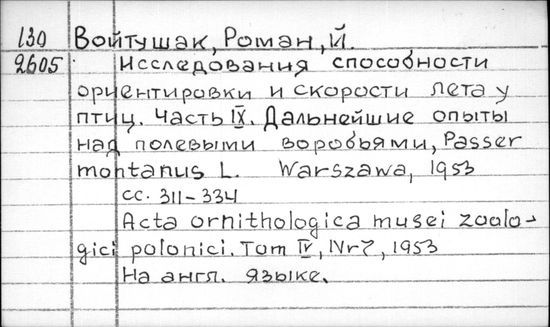 130 Войтушак, Роман, Й.
2605 Исследования способности
ориентировки и скорости лета у
птиц. Часть IX. Дальнейшие опыты
над полевыми воробьями, Passer
montanus L. Warszawa, 1953
сс. 311-334
Acta ornithologica musei zoolo-
gici polonici. Tom IV, Nr7, 1953
На англ. языке.